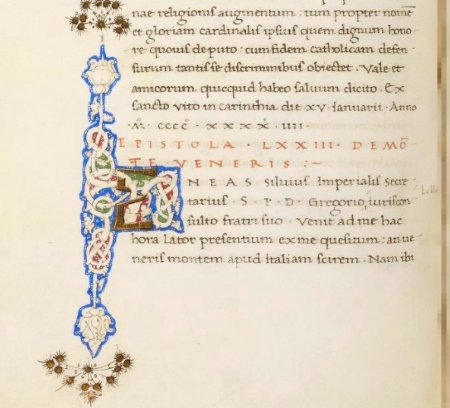 nae religionis augmentum : tum propter nomē
et gloriam cardinalis ipsius quem dignum hono
re quouis deputo : cum fidem catholicam defen
surum tantis se discriminibus obiectet . Vale et
amicorum quicquid habeo saluum dicito . Ex
sancto vito in carinthia die xv Ianuarii . Anno
M . CCCC . XXXX . IIII .
EPISTOLA . LXXIII . DE MŌ
TE . VENERIS : ~
AENEAS Siluius Imperialis Secre
tarius . S . P . D . Gregorio, iuriscon
sulto fratri suo . Venit ad me hac
hora lator presentium ex me quesitum : an ue
neris montem apud italiam scirem . Nam ibi